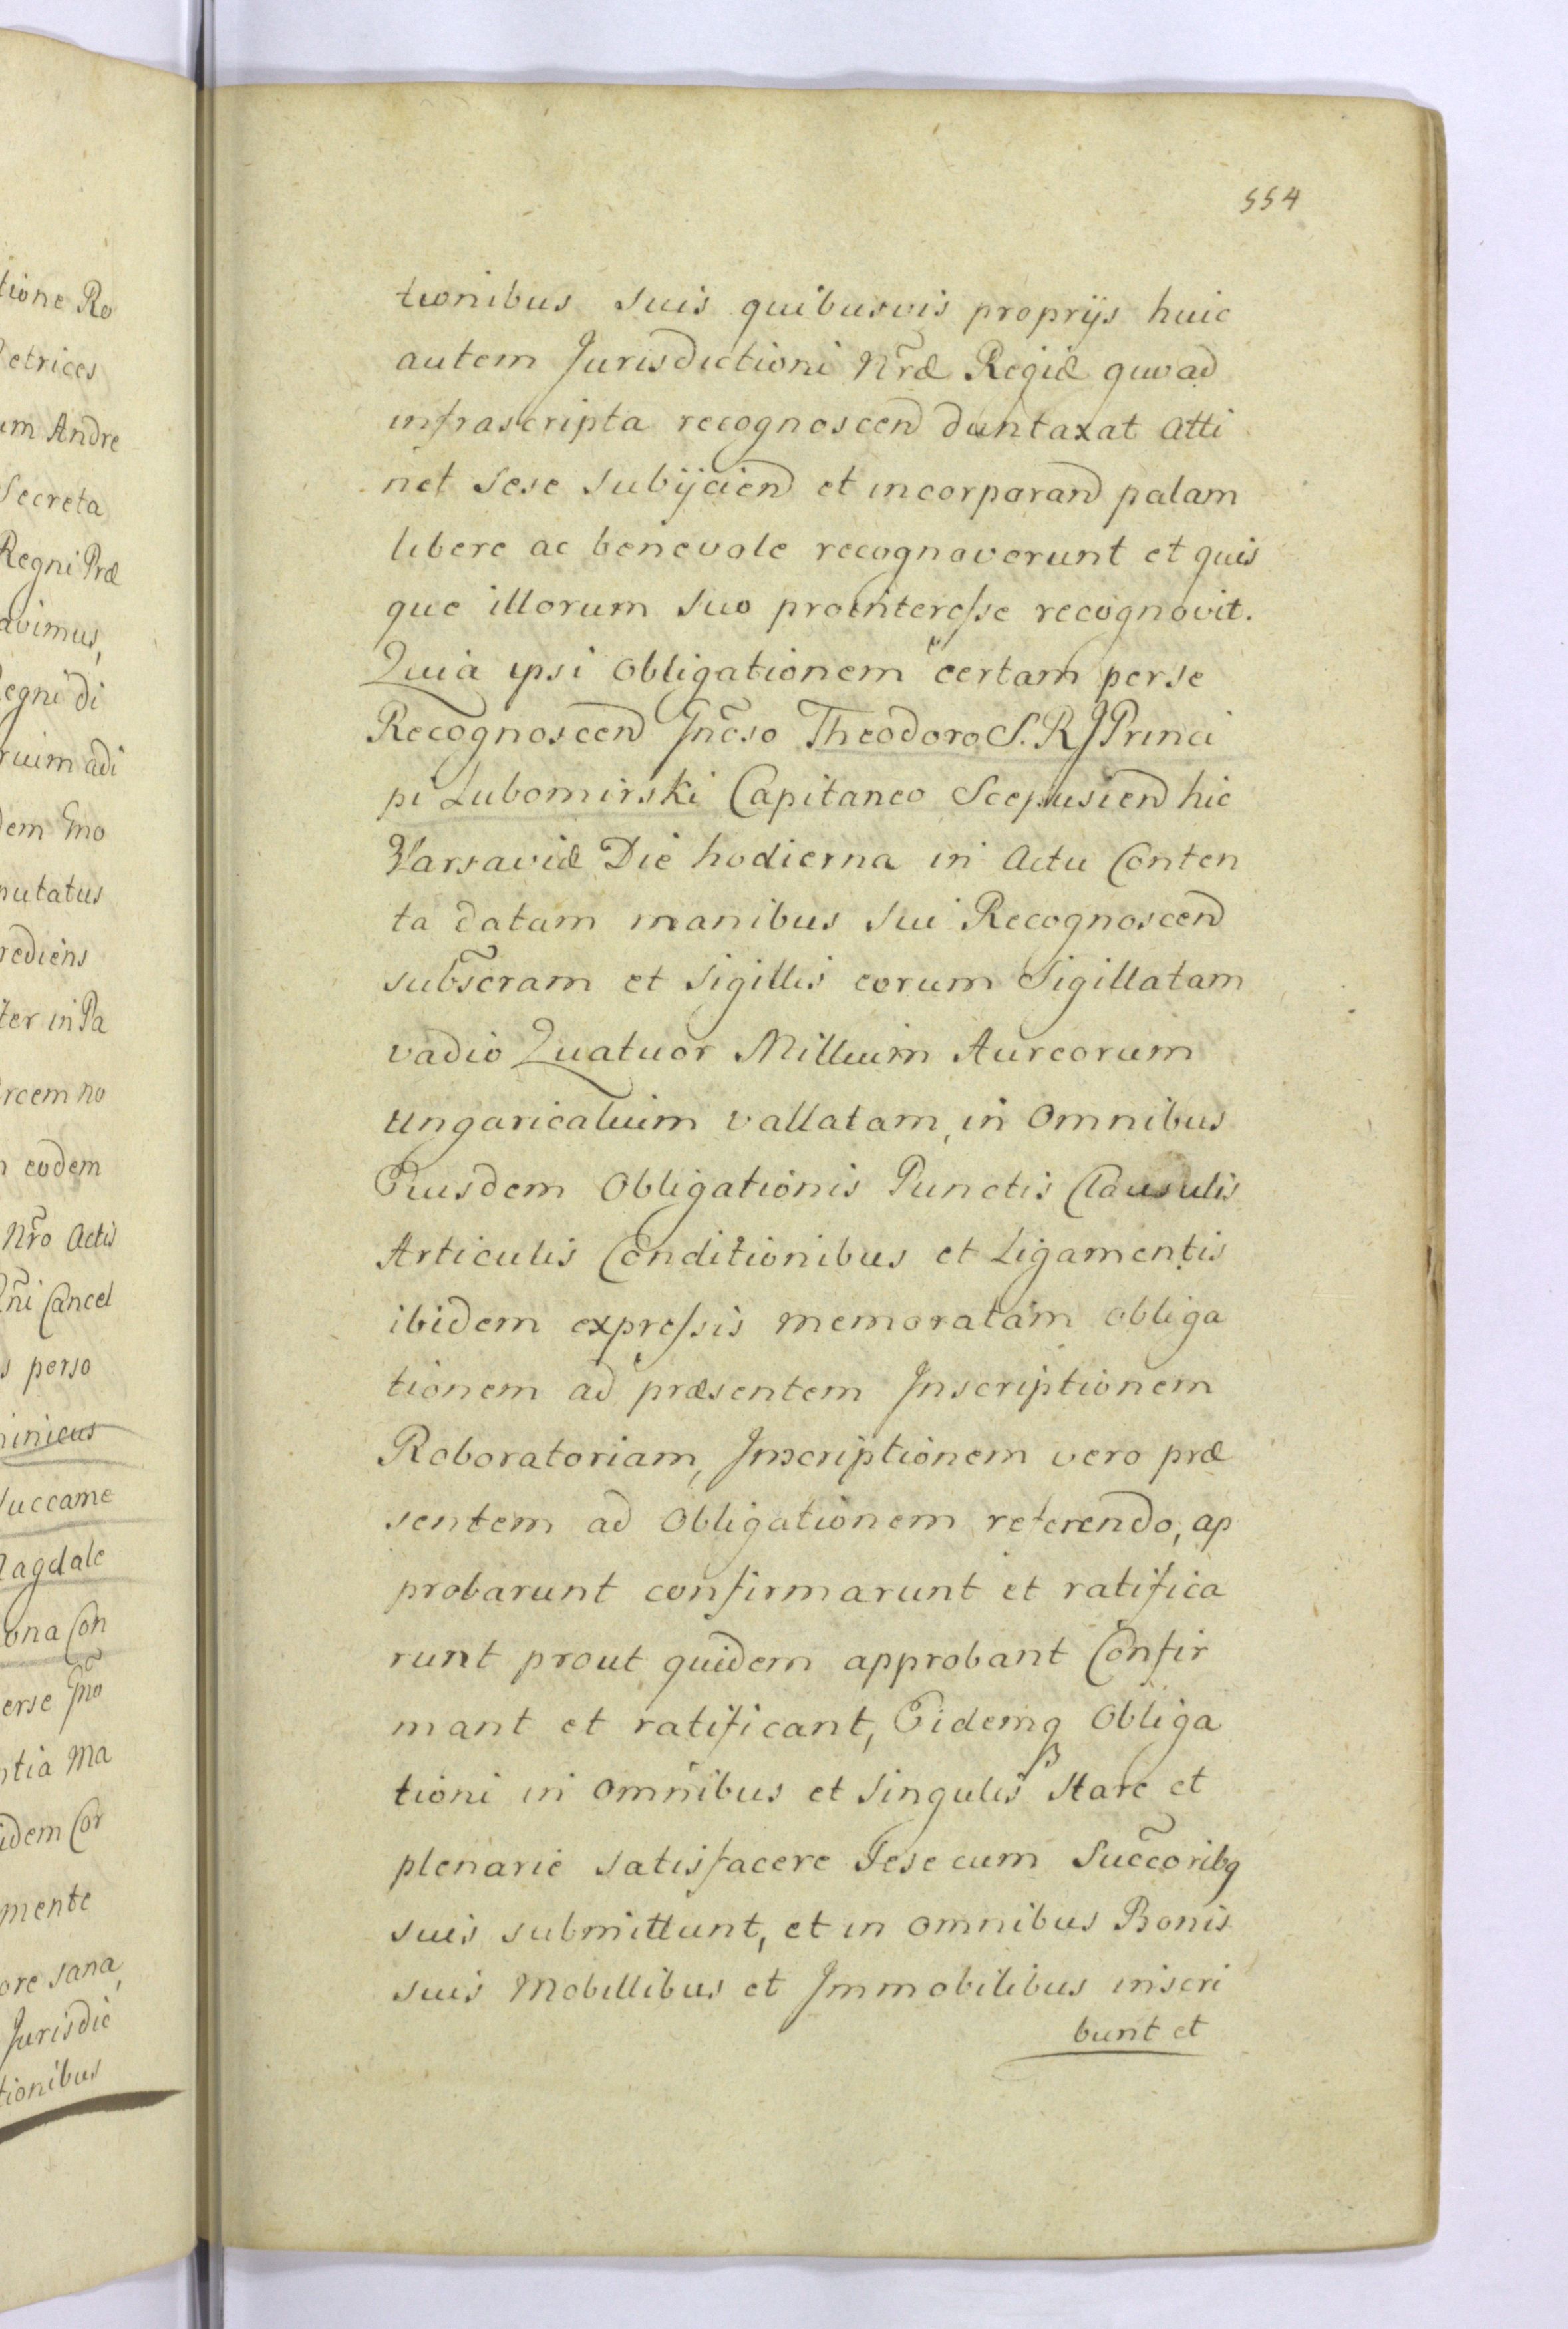 554
tionibus suis quibusvis proprijs huic
autem Jurisdictioni Nr̃æ Regiæ quoad
infrascripta recognoscend duntaxat atti
net sese subijciend et incorporand palam
libere ac benevole recognoverunt et quis
que illorum suo prointeresse recognovit.
Quia ipsi obligationem certam per se
Recognoscend Jnc̃so Theodoro S. R J Princi
pi Lubomirski Capitaneo Scepusiend hic
Varsaviæ Die hodierna in Actu Conten
ta datam manibus sui Recognoscend
subsc̃ram et Sigillis eorum Sigillatam
vadio Quatuor Millium Aureorum
Ungaricalium vallatam, in Omnibus
Eiusdem Obligationis Punctis Clausulis
Articulis Conditionibus et Ligamentis
ibidem expressis memoratam obliga
tionem ad præsentem Jnscriptionem
Roboratoriam, Jnscriptionem vero præ
sentem ad Obligationem referendo, ap
probarunt confirmarunt et ratifica
runt prout quidem approbant Confir
mant et ratificant, Eidemq Obliga
tioni in Omnibus et Singulis Stare et
plenarie satisfacere Sese cum Succ̃oribq
suis submittunt, et in omnibus Bonis
suis Mobillibus et Jmmobilibus inscri
bunt et
tione Ro
etrices
um Andre
Secreta
Regni Præ
avimus,
egni di
ruim adi
dem Gno
nutatus
rediens
ter in Pa
rcem no
eodem
Nr̃o Actis
Cancel
perso
inicus
Succame
agdale
ona Con
erse Jno
ntia Ma
idem Cor
mente
ore sana,
Jurisdic
tionibus